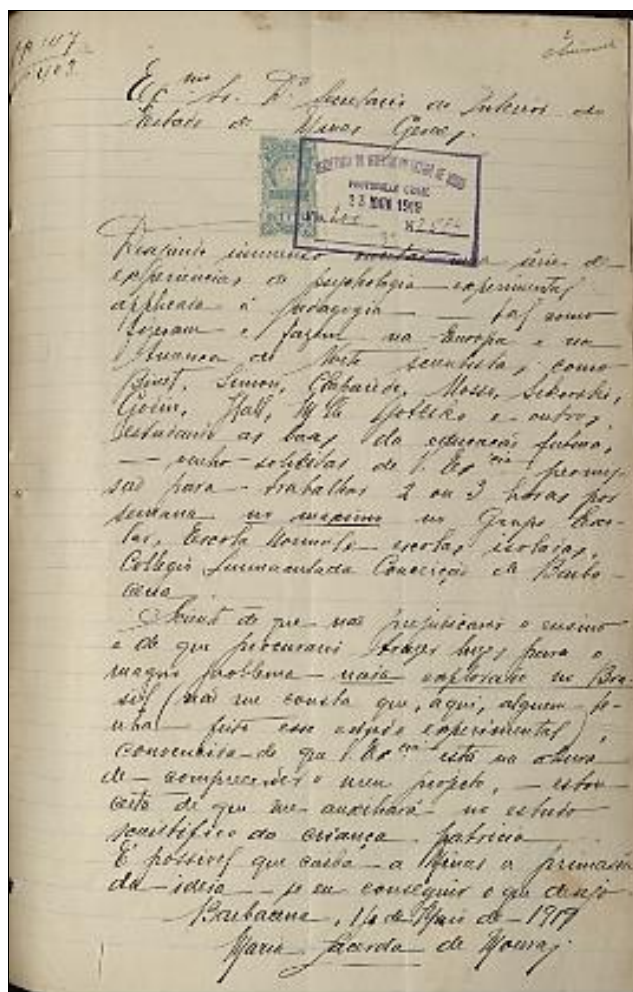 Ex.mo Sr. Dr. Secretario do Interior do
Estado de Minas Geraes.
23 MAIO 1919
Desejando immenso uma série de
experiencias de psychologia experimental
applicada á pedagogia — taes como
fizeram e fazem na Europa e na
America do Norte scientistas, como
Binet, Simon, Claparède, Mosso, Sikorski,
Hall, Mlle Joteyko e outros,
estudando as bases da educação futura,
— venho solicitar de V. Ex.cia permis-
são para trabalhar 2 ou 3 horas por
semana no maximo no Grupo Esco-
lar, Escola Normal e escolas isoladas,
Collegio Immaculada Conceição de Barba-
cena.
de que não prejudicarei o ensino
e de que procurarei trazer luzes para o
magno problema não explorado no Bra-
sil (não me consta que, aqui, alguem te-
nha feito esse estudo experimental),
convencida de que V. Ex.cia está na altura
de comprehender o meu projeto, — estou
certa de que me auxiliará no estudo
scientifico da criança patricia.
É possivel que caiba a Minas a primasia
da ideia — se eu conseguir o que desejo.
Barbacena, 14 de Maio de 1919
Maria Lacerda de Moura.